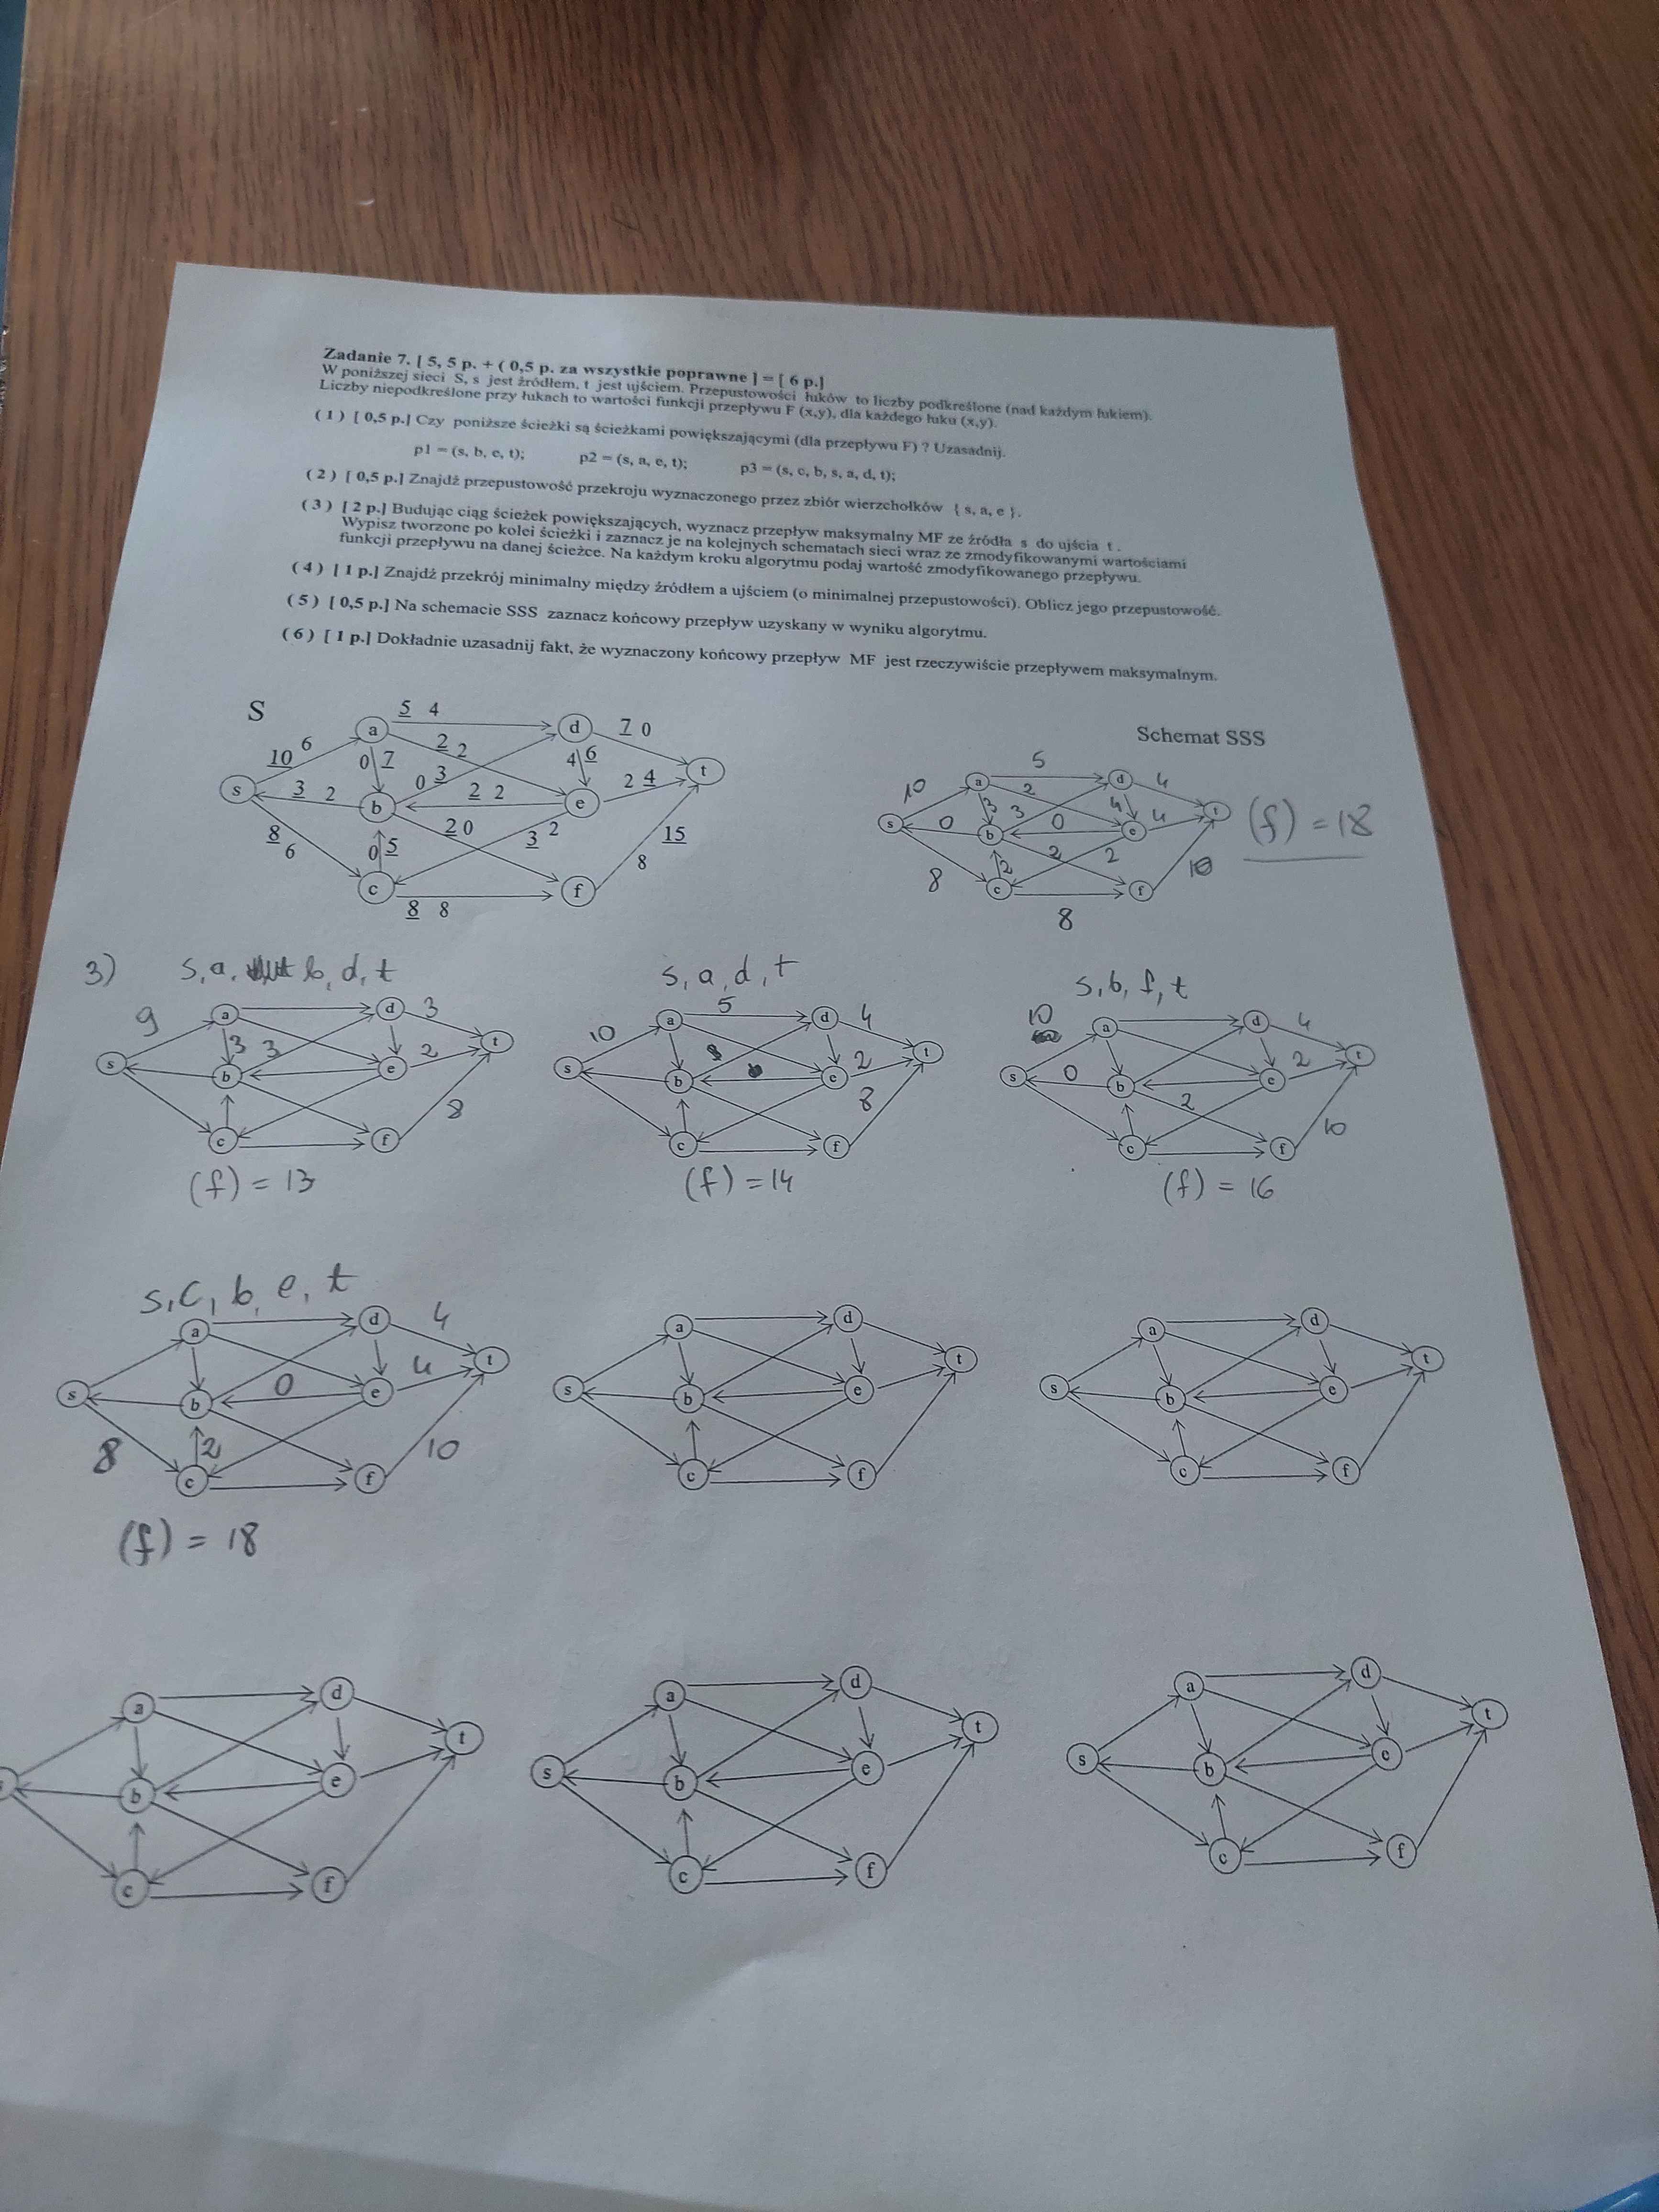 Zadanie 7. [ 5, 5 p. + ( 0,5 p. za wszystkie poprawne ] = [ 6 p.]
W poniższej sieci S, s jest źródłem, t jest ujściem. Przepustowości łuków to liczby podkreślone (nad każdym łukiem).
Liczby niepodkreślone przy łukach to wartości funkcji przepływu F (x,y), dla każdego łuku (x,y).
( 1 ) [ 0,5 p.] Czy poniższe ścieżki są ścieżkami powiększającymi (dla przepływu F) ? Uzasadnij.
p1 = (s, b, e, t); p2 = (s, a, e, t); p3 = (s, c, b, s, a, d, t);
( 2 ) [ 0,5 p.] Znajdź przepustowość przekroju wyznaczonego przez zbiór wierzchołków { s, a, e }.
( 3 ) [ 2 p.] Budując ciąg ścieżek powiększających, wyznacz przepływ maksymalny MF ze źródła s do ujścia t .
Wypisz tworzone po kolei ścieżki i zaznacz je na kolejnych schematach sieci wraz ze zmodyfikowanymi wartościami
funkcji przepływu na danej ścieżce. Na każdym kroku algorytmu podaj wartość zmodyfikowanego przepływu.
( 4 ) [ 1 p.] Znajdź przekrój minimalny między źródłem a ujściem (o minimalnej przepustowości). Oblicz jego przepustowość.
( 5 ) [ 0,5 p.] Na schemacie SSS zaznacz końcowy przepływ uzyskany w wyniku algorytmu.
( 6 ) [ 1 p.] Dokładnie uzasadnij fakt, że wyznaczony końcowy przepływ MF jest rzeczywiście przepływem maksymalnym.
S
5 4
a
d
7 0
10 6
2 2
0 7
4 6
t
s
3 2
b
0 3
2 2
e
2 4
8 6
0 5
2 0
3 2
15
8
c
f
8 8
Schemat SSS
5
10
a
2
d
4
s
0
3
3
b
0
4
e
4
t
(f) = 18
8
2
c
2
2
f
10
8
3)
s, a, b, d, t
9
a
d
3
s
3
3
b
e
2
t
c
f
8
(f) = 13
s, a, d, t
10
a
5
d
4
s
b
e
2
t
c
f
8
(f) = 14
s, b, f, t
10
a
d
4
s
0
b
e
2
t
2
c
f
10
(f) = 16
s, c, b, e, t
a
d
4
s
b
0
e
4
t
8
2
c
f
10
(f) = 18
a
d
s
b
e
t
c
f
a
d
s
b
e
t
c
f
a
d
b
e
t
c
f
a
d
s
b
e
t
c
f
a
d
s
b
e
t
c
f